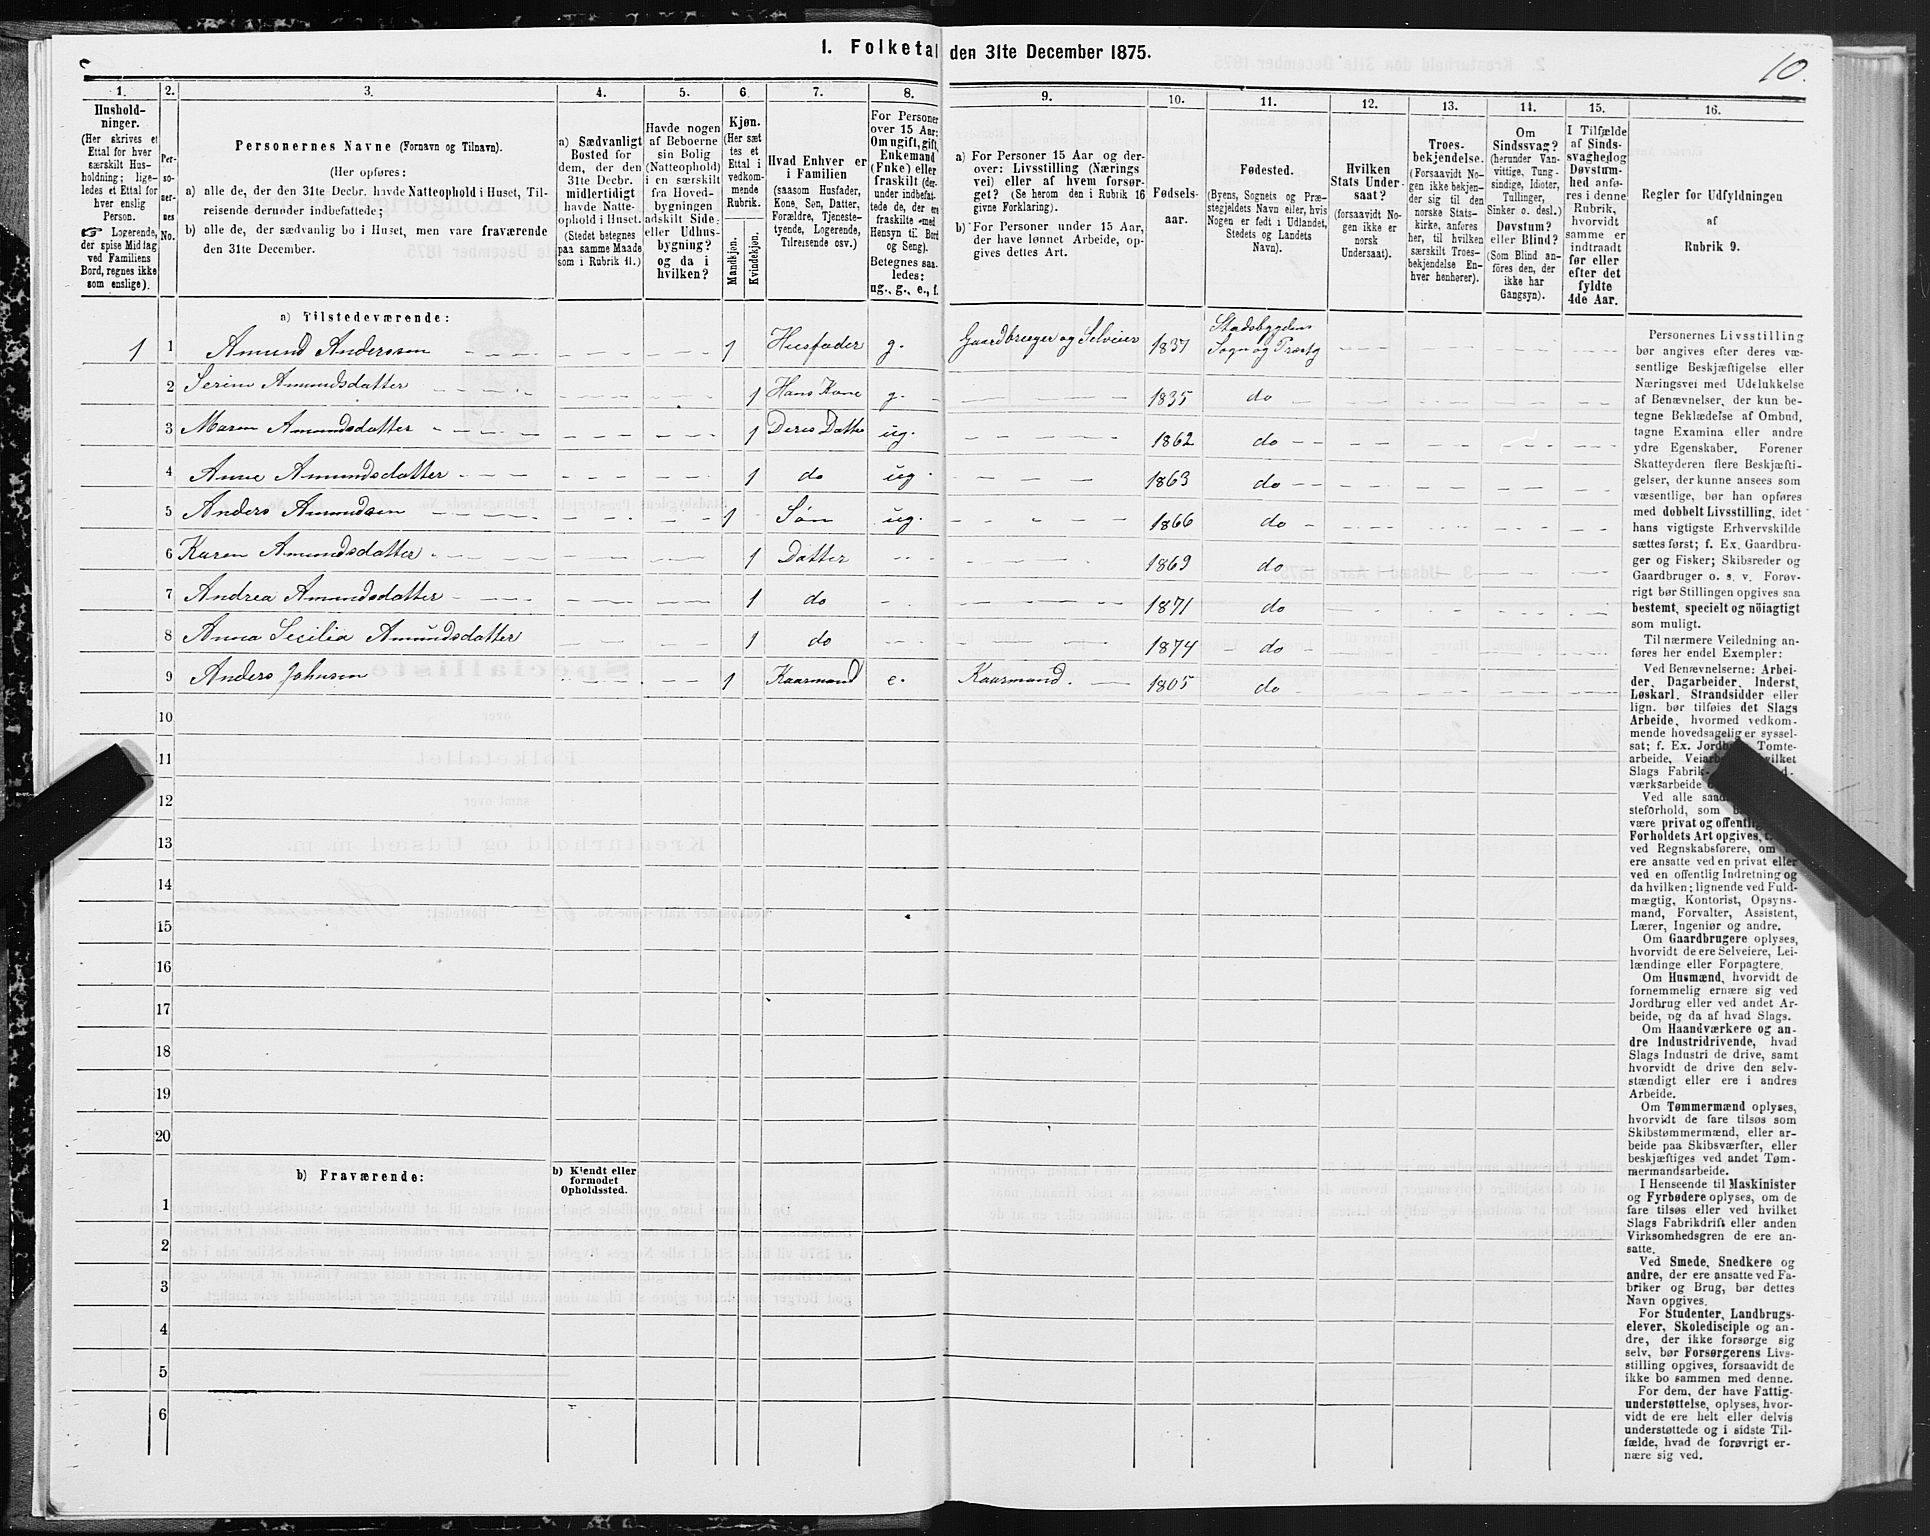 I. Folketal den 31te December 1875.
10.
1.
2.
3.
4.
5.
6.
7.
8.
9.
10.
11.
12.
13.
14.
15.
16.
Hushold-
ninger.
(Her skrives et
Ettal for hver
særskilt Hus-
holdning; lige-
ledes et Ettal for
hver enslig
Person.
☞ Logerende,
der spise Middag
ved Familiens
Bord, regnes ikke
som enslige).
Per-
so-
ner-
nes
No.
Personernes Navne (Fornavn og Tilnavn).
(Her opføres:
a) alle de, der den 31te Decbr. havde Natteophold i Huset, Til-
reisende derunder indbefattede;
b) alle de, der sædvanlig bo i Huset, men vare fraværende
den 31te December.
a) Sædvanligt
Bosted for
dem, der den
31te Decbr.
midlertidigt
havde Natte-
ophold i Huset.
(Stedet betegnes
paa samme Maade
som i Rubrik 11.)
Havde nogen
af Beboerne
sin Bolig
(Natteophold)
i en særskilt
fra Hoved-
bygningen
adskilt Side-
eller Udhus-
bygning?
og da i
hvilken?
Kjøn.
(Her sæt
tes et
Ettal i
vedkom-
mende
Rubrik.
Mandkjøn.
Kvindekjøn.
Hvad Enhver er
i Familien
(saasom Husfader,
Kone, Søn, Datter,
Forældre, Tjeneste-
tyende, Logerende,
Tilreisende osv.)
For Personer
over 15 Aar:
Om ugift, gift,
Enkemand
(Enke) eller
fraskilt (der-
under indbefat-
tede de, der ere
fraskilte med
Hensyn til Bord
og Seng).
Betegnes saa-
ledes:
ug., g., e., f.
a) For Personer 15 Aar og der-
over: Livsstilling (Nærings
vei) eller af hvem forsør-
get? (Se herom den i Rubrik 16
givne Forklaring).
b) For Personer under 15 Aar,
der have lønnet Arbeide, op-
gives dettes Art.
Fødsels-
aar.
Fødested.
(Byens, Sognets og Præ-
stegjeldets Navn eller, hvis
Nogen er født i Udlandet,
Stedets og Landets
Navn).
Hvilken
Stats Under-
saat?
(forsaavidt No-
gen ikke er
norsk
Undersaat).
Troes-
bekjendelse.
(Forsaavidt No-
gen ikke bekjen-
der sig til den
norske Stats-
kirke, anføres
her, til hvilken
særskilt Troes-
bekjendelse En-
hver henhører).
Om
Sindssvag?
(herunder Van-
vittige, Tung-
sindige, Idioter,
Tullinger,
Sinker o. desl.)
Døvstum?
eller Blind?
(Som Blind an-
føres den, der
ikke har
Gangsyn).
I Tilfælde
af Sinds-
svaghed og
Døvstum-
hed anfø-
res i denne
Rubrik,
hvorvidt
samme er
indtraadt
før eller
efter det
fyldte
4de Aar.
Regler for Udfyldningen
af
Rubrik 9.
a) Tilstedeværende:
1 1 Amund Anderssen 1 Husfader g. Gaardbruger og Selveier 1837 Stadsbygdens Sogn og Præstg
2 Serine Amundsdatter 1 Hans Kone g. 1835 do
3 Maren Amundsdatter 1 Deres Datter ug. 1862 do
4 Anne Amundsdatter 1 do ug. 1863 do
5 Anders Amundsen 1 Søn ug. 1866 do
6 Karen Amundsdatter 1 Datter 1869 do
7 Andrea Amundsdatter 1 do 1871 do
8 Anna Secilia Amundsdatter 1 do 1874 do
9 Anders Johnsen 1 Kaarmand e. Kaarmand. 1805 do
10
11
12
13
14
15
16
17
18
19
20
b) Fraværende:
b) Kjendt eller
formodet
Opholdssted.
1
2
3
4
5
6
Personernes Livsstilling
bør angives efter deres væ-
sentlige Beskjæftigelse eller
Næringsvei med Udelukkelse
af Benævnelser, der kun be-
tegne Beklædelse af Ombud,
tagne Examina eller andre
ydre Egenskaber. Forener
Skatteyderen flere Beskjæfti-
gelser, der kunne ansees som
væsentlige, bør han opføres
med dobbelt Livsstilling, idet
hans vigtigste Erhvervskilde
sættes først; f. Ex. Gaardbru-
ger og Fisker; Skibsreder og
Gaardbruger o. s. v. Forøv-
rigt bør Stillingen opgives saa
bestemt, specielt og nöiagtigt
som muligt.
Til nærmere Veiledning an-
føres her endel Exempler:
Ved Benævnelserne: Arbei-
der, Dagarbeider, Inderst,
Løskarl, Strandsidder eller
lign. bør tilføies det Slags
Arbeide, hvormed vedkom-
mende hovedsagelig er syssel-
sat; f. Ex. Tomte-
arbeide,
Slags Fabrik-
værksarbeide
Ved alle
steforhold, som
være privat og
Forholdets Art opgives,
ved Regnskabsførere, om
ere ansatte ved en privat eller
ved en offentlig Indretning og
da hvilken; lignende ved Fuld-
mægtig, Kontorist, Opsyns-
mand, Forvalter, Assistent,
Lærer, Ingeniør og andre.
Om Gaardbrugere oplyses,
hvorvidt de ere Selveiere, Lei-
lændinge eller Forpagtere.
Om Husmænd, hvorvidt de
fornemmelig ernære sig ved
Jordbrug eller ved andet Ar-
beide, og da af hvad Slags.
Om Haandværkere og an-
dre Industridrivende, hvad
Slags Industri de drive, samt
hvorvidt de drive den selv-
stændigt eller ere i andres
Arbeide.
Om Tømmermænd oplyses,
hvorvidt de fare tilsøs som
Skibstømmermænd, eller ar-
beide paa Skibsværfter, eller
beskjæftiges ved andet Tøm-
mermandsarbeide.
I Henseende til Maskinister
og Fyrbødere oplyses, om de
fare tilsøs eller ved hvilket
Slags Fabrikdrift eller anden
Virksomhedsgren de ere an-
satte.
Ved Smede, Snedkere og
andre, der ere ansatte ved Fa-
briker og Brug, bør dettes
Navn opgives.
For Studenter, Landbrugs-
elever, Skoledisciple og an-
dre, der ikke forsørge sig
selv, bør Forsørgerens Livs-
stilling opgives, forsaavidt de
ikke bo sammen med denne.
For dem, der have Fattig-
understøttelse, oplyses, hvor-
vidt de ere helt eller delvis
understøttede og i sidste Til-
fælde, hvad de forøvrigt er-
nære sig ved.